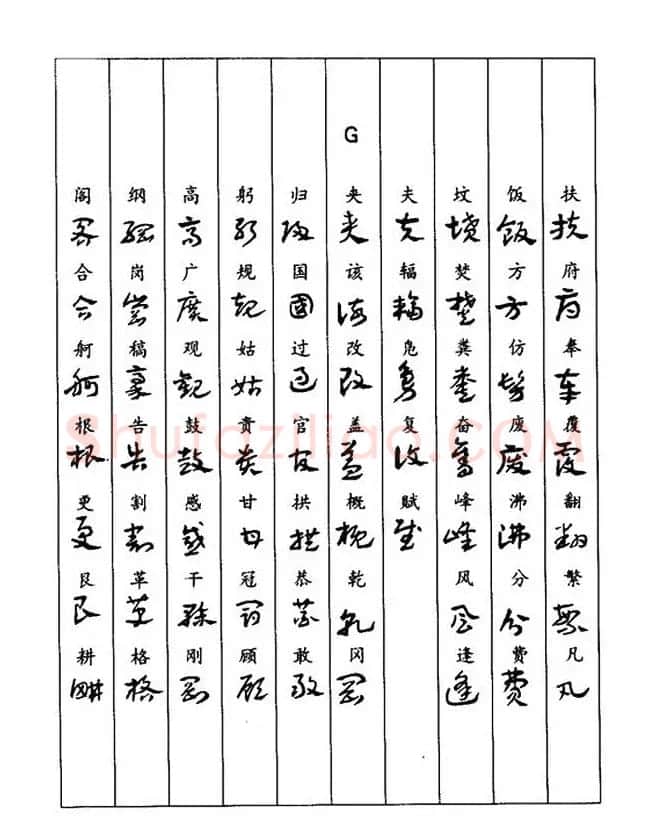 扶府奉覆翻繁凡
饭方仿废沸分费
坟焚粪奋峰风逢
夫辐凫复赋
G
夹该改盖概乾冈
归国过官拱恭敢
躬规姑贵甘冠顾
高广观鼓感干刚
纲岗稿告割革格
阁合舸根更艮耕
Shufaziliao.COM